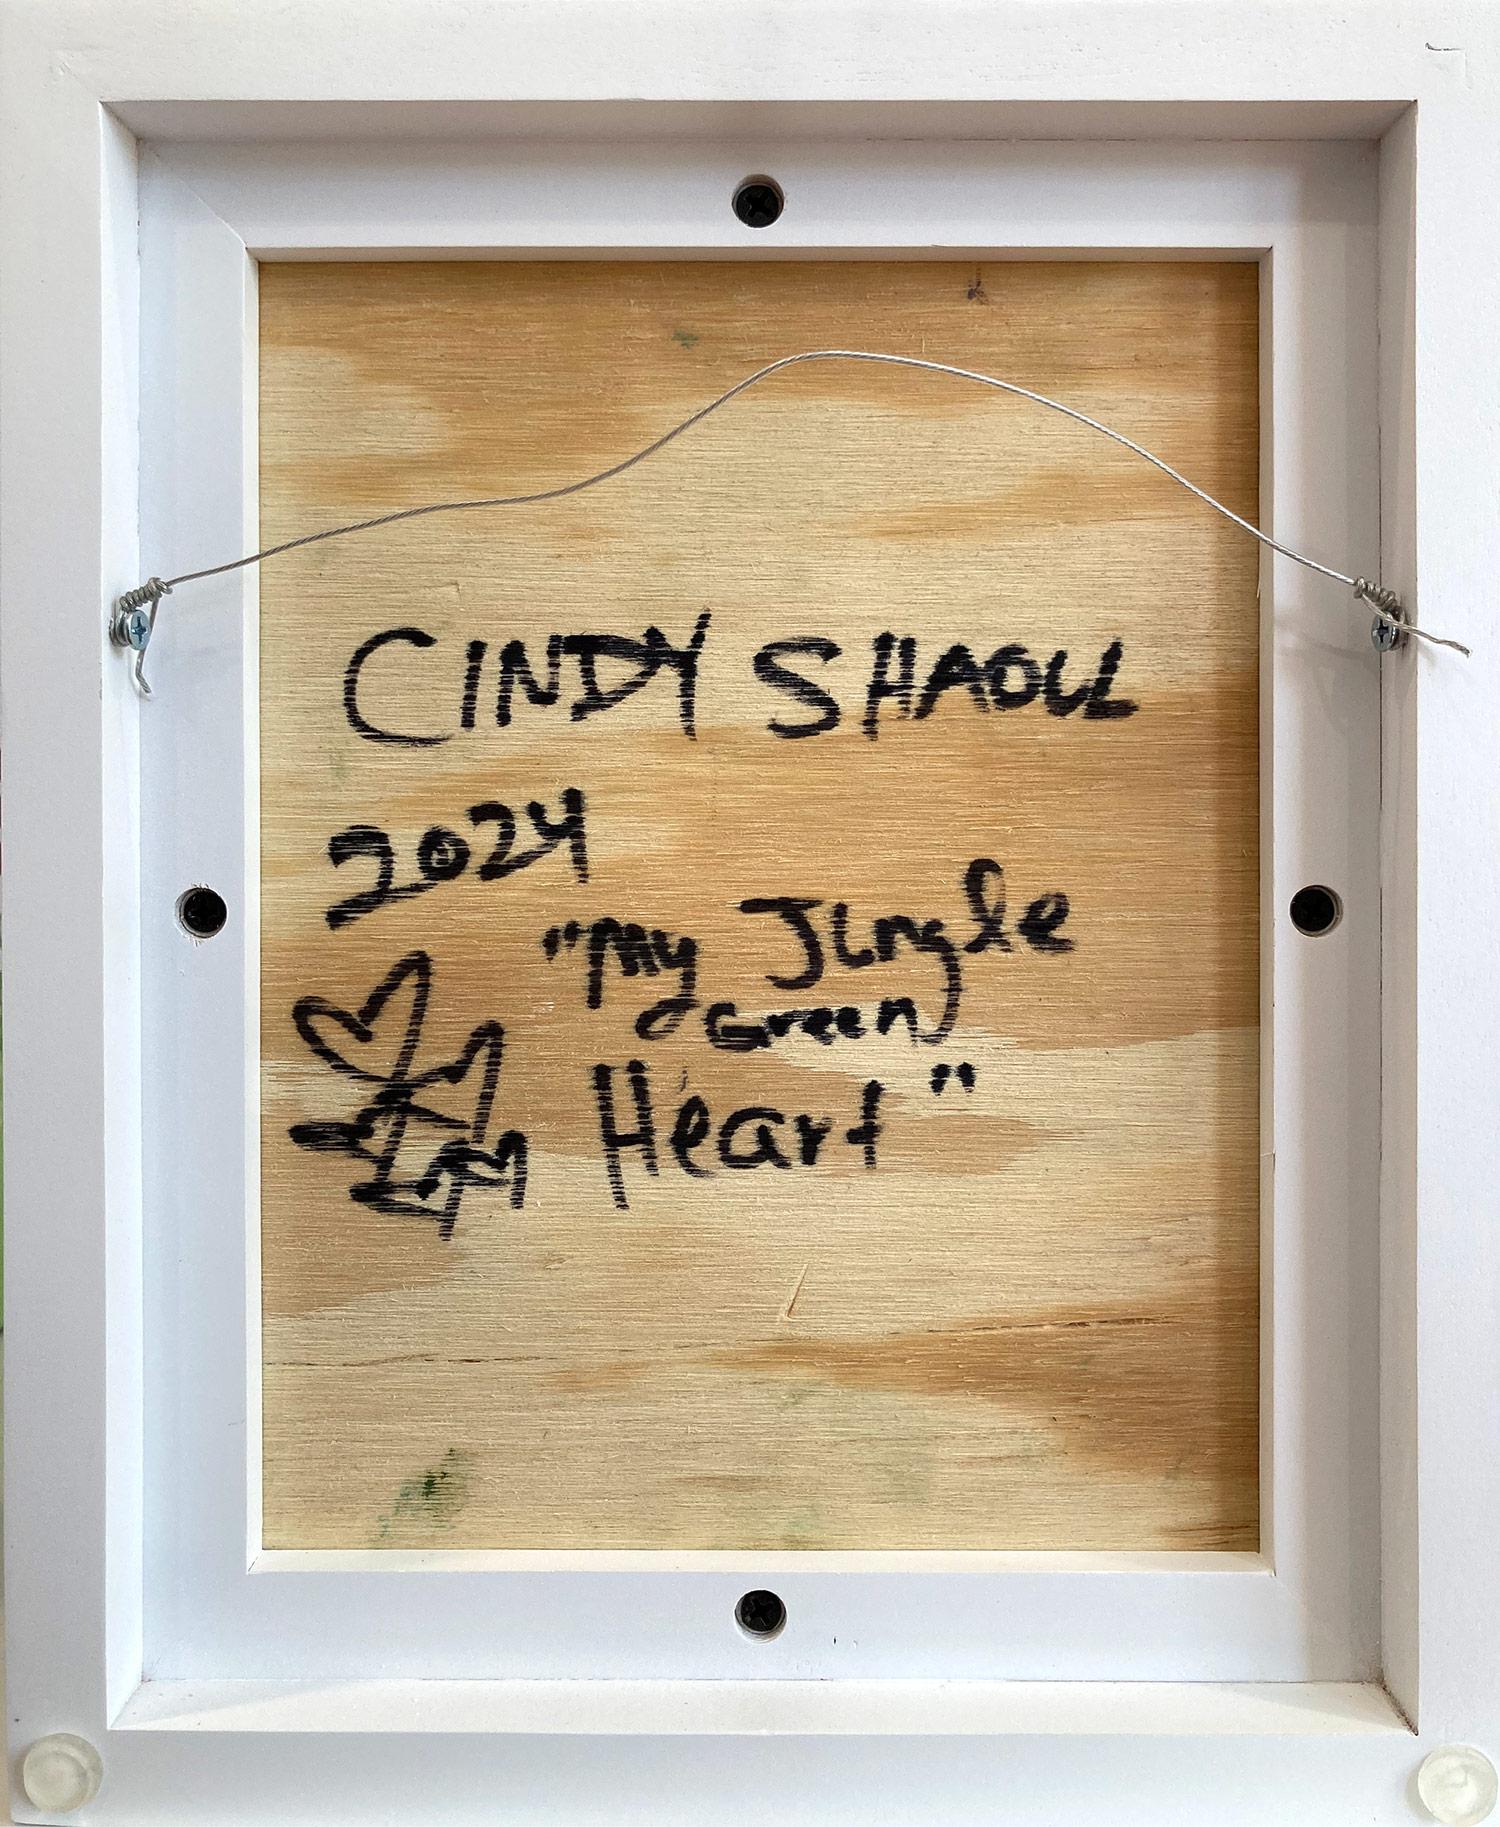 CINDY SHAOUL
2024
"My Jungle
Green
Heart"